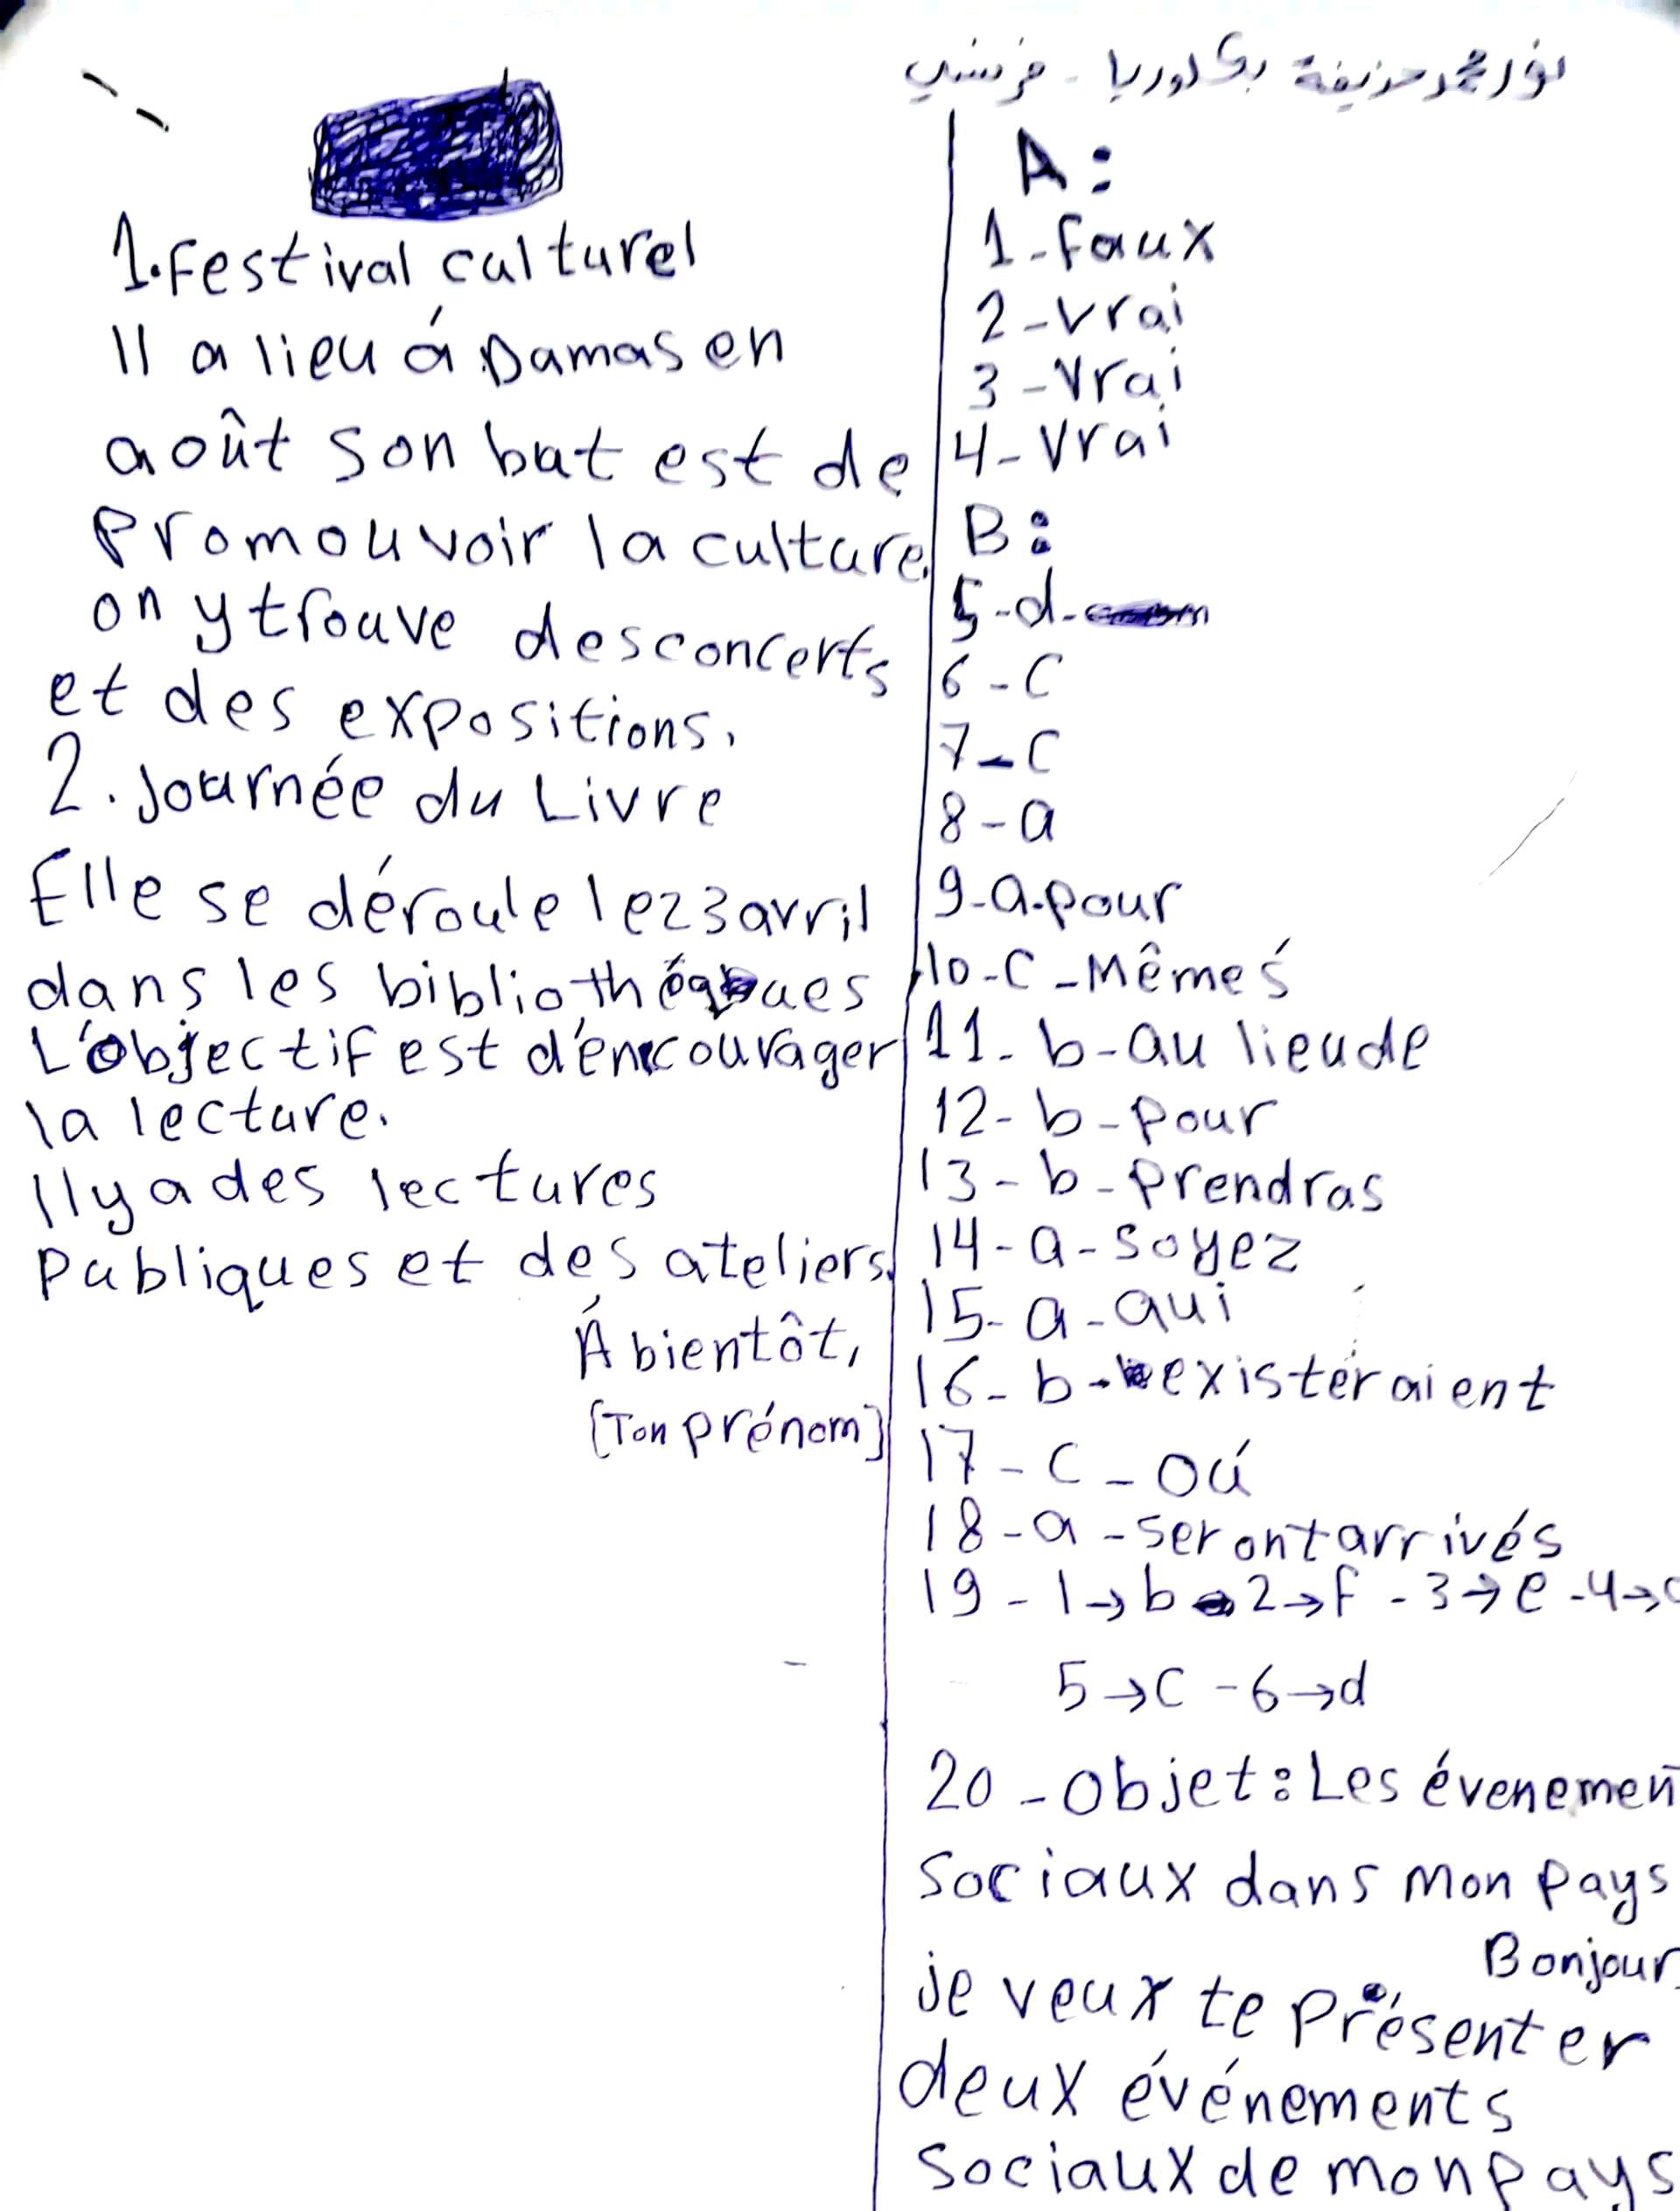 نور محمد حذيفة بكلوريا - فرنسي
A:
1-Faux
2-vrai
3-Vrai
4-vrai
B:
5-d-
6-C
7-C
8-a
9-a-pour
10-C-Mêmes
11-b-au lieude
12-b-pour
13-b-prendras
14-a-soyez
15-a-qui
16-b-existeraient
17-C-Oú
18-a-seront arrivés
19-1→b-2→F-3→e-4→
5→C-6→d
20-Objet: Les évenemen
Sociaux dans mon pays
Bonjour
je veux te présenter
deux événements
sociaux de mon pays
1. Festival culturel
Il a lieu á Damas en
août son bat est de
Promouvoir la culture.
on y trouve des concerts
et des expositions.
2. Journée du Livre
Elle se déroule le 23 avril
dans les bibliothéques
L'objectif est d'encourager
la lecture.
Il y a des lectures
Publiques et des ateliers.
Á bientôt,
[Ton prénom]